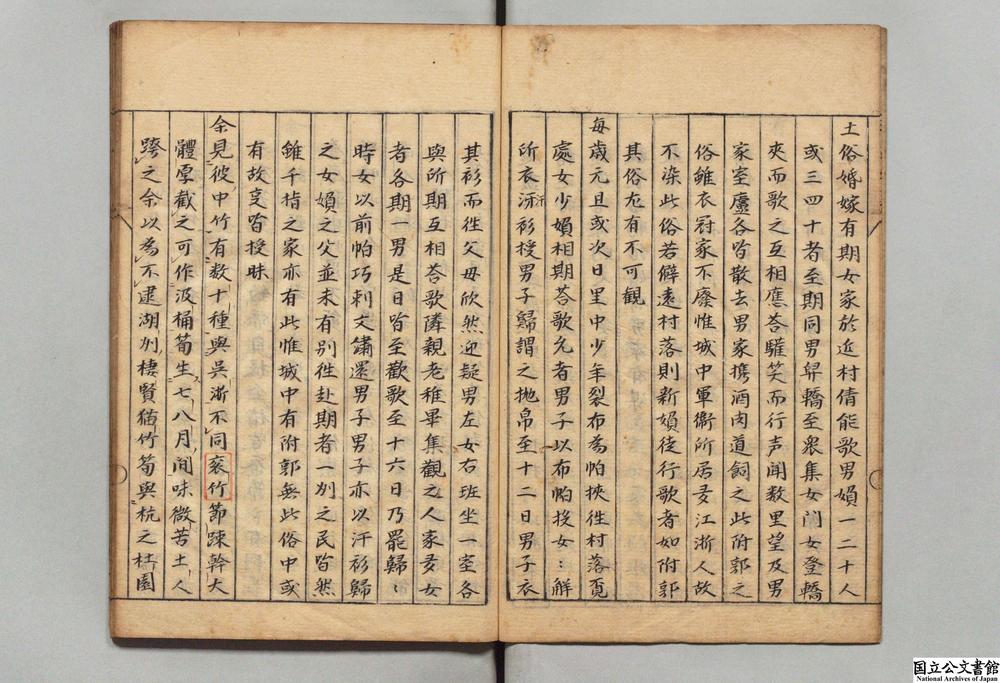 土俗婚嫁有期女家於近村倩能歌男婦一二十人
或三四十者至期同男舁轎至衆集女門女登轎
夾而歌之互相應荅驩笑而行声聞数里望及男
家室廬各皆散去男家携酒肉道飼之此附郭之
俗雖衣冠家不廢惟城中軍衛所居多江浙人故
不染此俗若僻遠村落則新婦徒行歌者如附郭
其俗尤有不可觀
每歳元旦或次日里中少年裂布為帕挾徃村落覓
處女少婦相期荅歌允者男子以布帕投女〻解
所衣汗衫授男子歸謂之抛帛至十二日男子衣
其衫而徃父母欣然迎疑男左女右班坐一室各
與所期互相荅歌隣親老稚畢集觀之人家多女
者各期一男是日皆至歡歌至十六日乃罷歸〻
時女以前帕巧刺文繡還男子男子亦以汗衫歸
之女婦之父並未有别徃赴期者一州之民皆然
雖千指之家亦有此惟城中有附郭無此俗中或
有故芟皆授昧
余見彼中竹有数十種與吴浙不同衮竹節踈幹大
體厚截之可作汲桶筍生七八月間味微苦土人
誇之余以為不逮湖州棲賢猫竹筍與杭之杜園
国立公文書館
National Archives of Japan